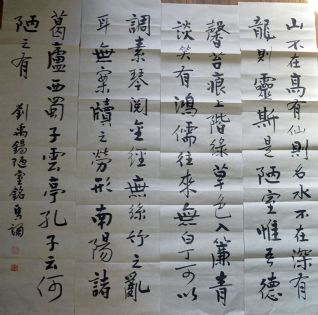 山不在高有仙則名水不在深有
龍則靈斯是陋室惟吾德
馨苔痕上階綠草色入簾青
談笑有鴻儒往來無白丁可以
調素琴閱金經無絲竹之亂
耳無案牘之勞形南陽諸
葛廬西蜀子雲亭孔子云何
陋之有 劉禹錫陋室銘